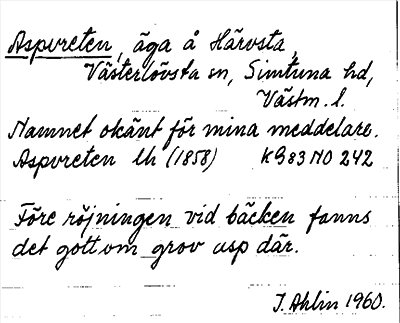 Aspvreten, äga å Härvsta,
Västerlövsta sn, Simtuna hd,
Västm. l.
Namnet okänt för mina meddelare.
Aspvreten lh (1858) KG83 NO 242
Före röjningen vid bäcken fanns
det gott om grov asp där.
J. Ahlin 1960.